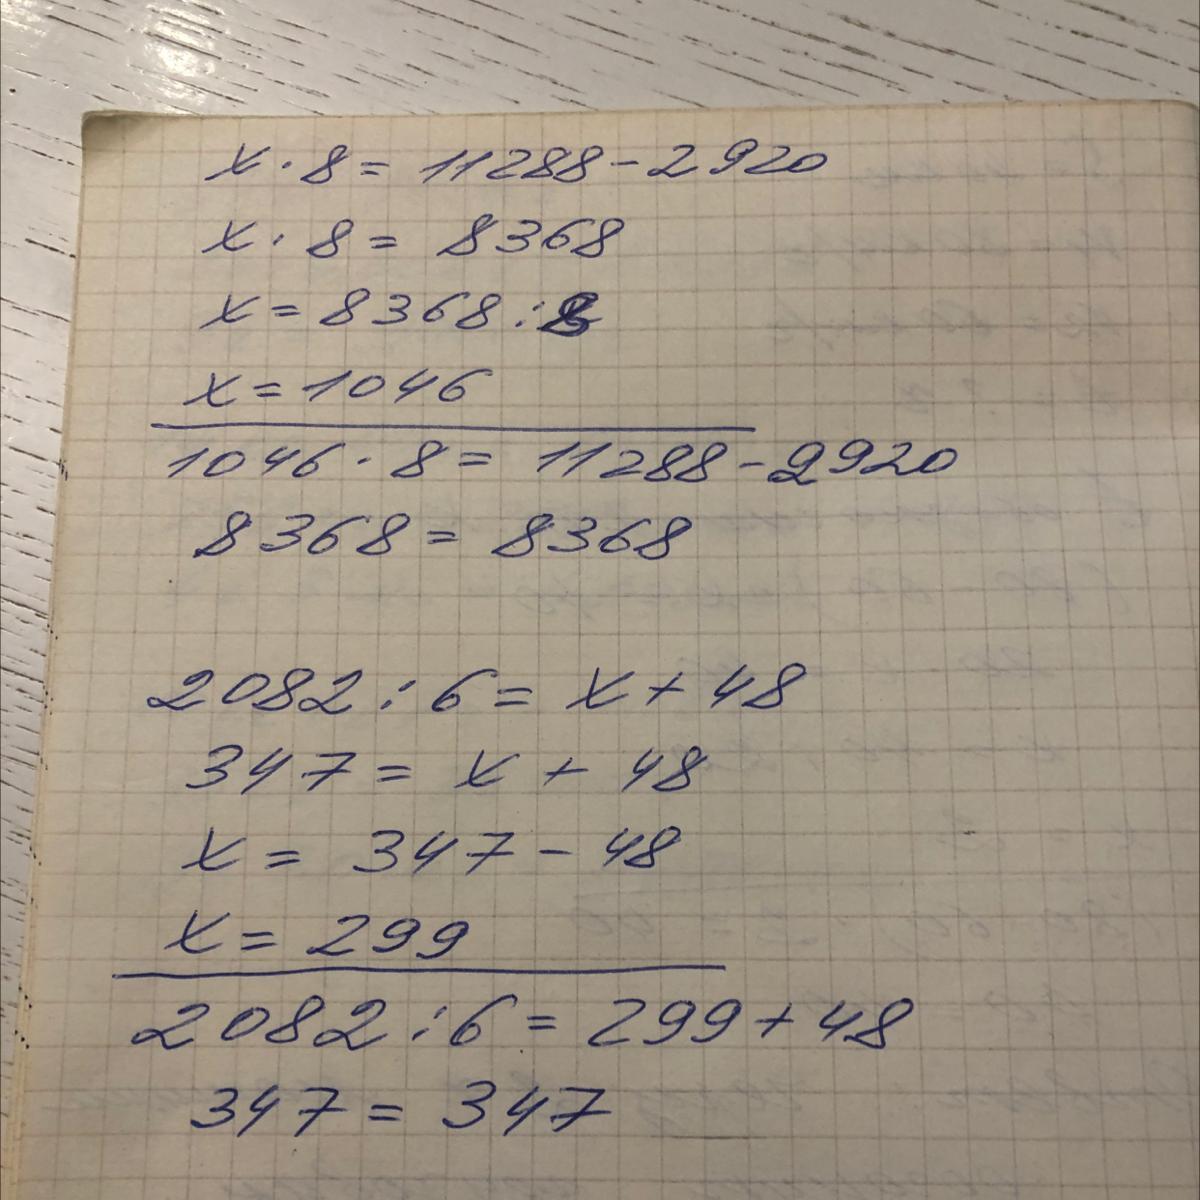 x · 8 = 11288 - 2920
x · 8 = 8368
x = 8368 : 8
x = 1046
1046 · 8 = 11288 - 2920
8368 = 8368
2082 : 6 = x + 48
347 = x + 48
x = 347 - 48
x = 299
2082 : 6 = 299 + 48
347 = 347